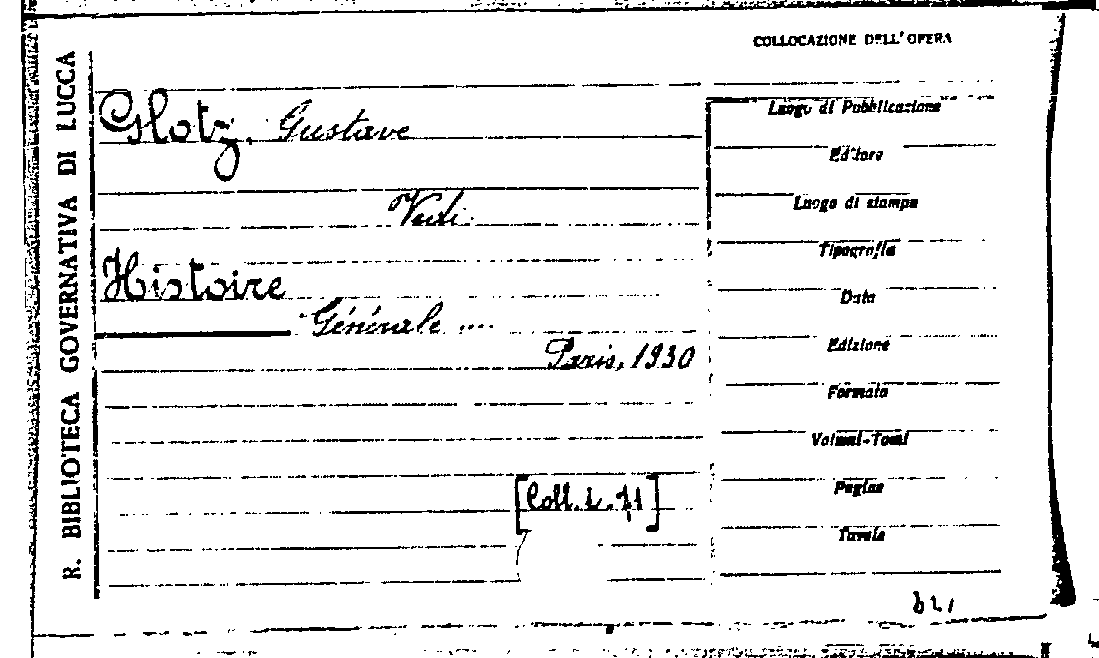 R. BIBLIOTECA GOVERNATIVA DI LUCCA
COLLOCAZIONE DELL'OPERA
Glotz, Gustave
Vedi
Histoire
Générale ....
Paris, 1930
[Coll. 2. 71]
Luogo di Pubblicazione
Editore
Luogo di stampa
Tipografia
Data
Edizione
Formato
Volumi-Tomi
Pagine
Tavole